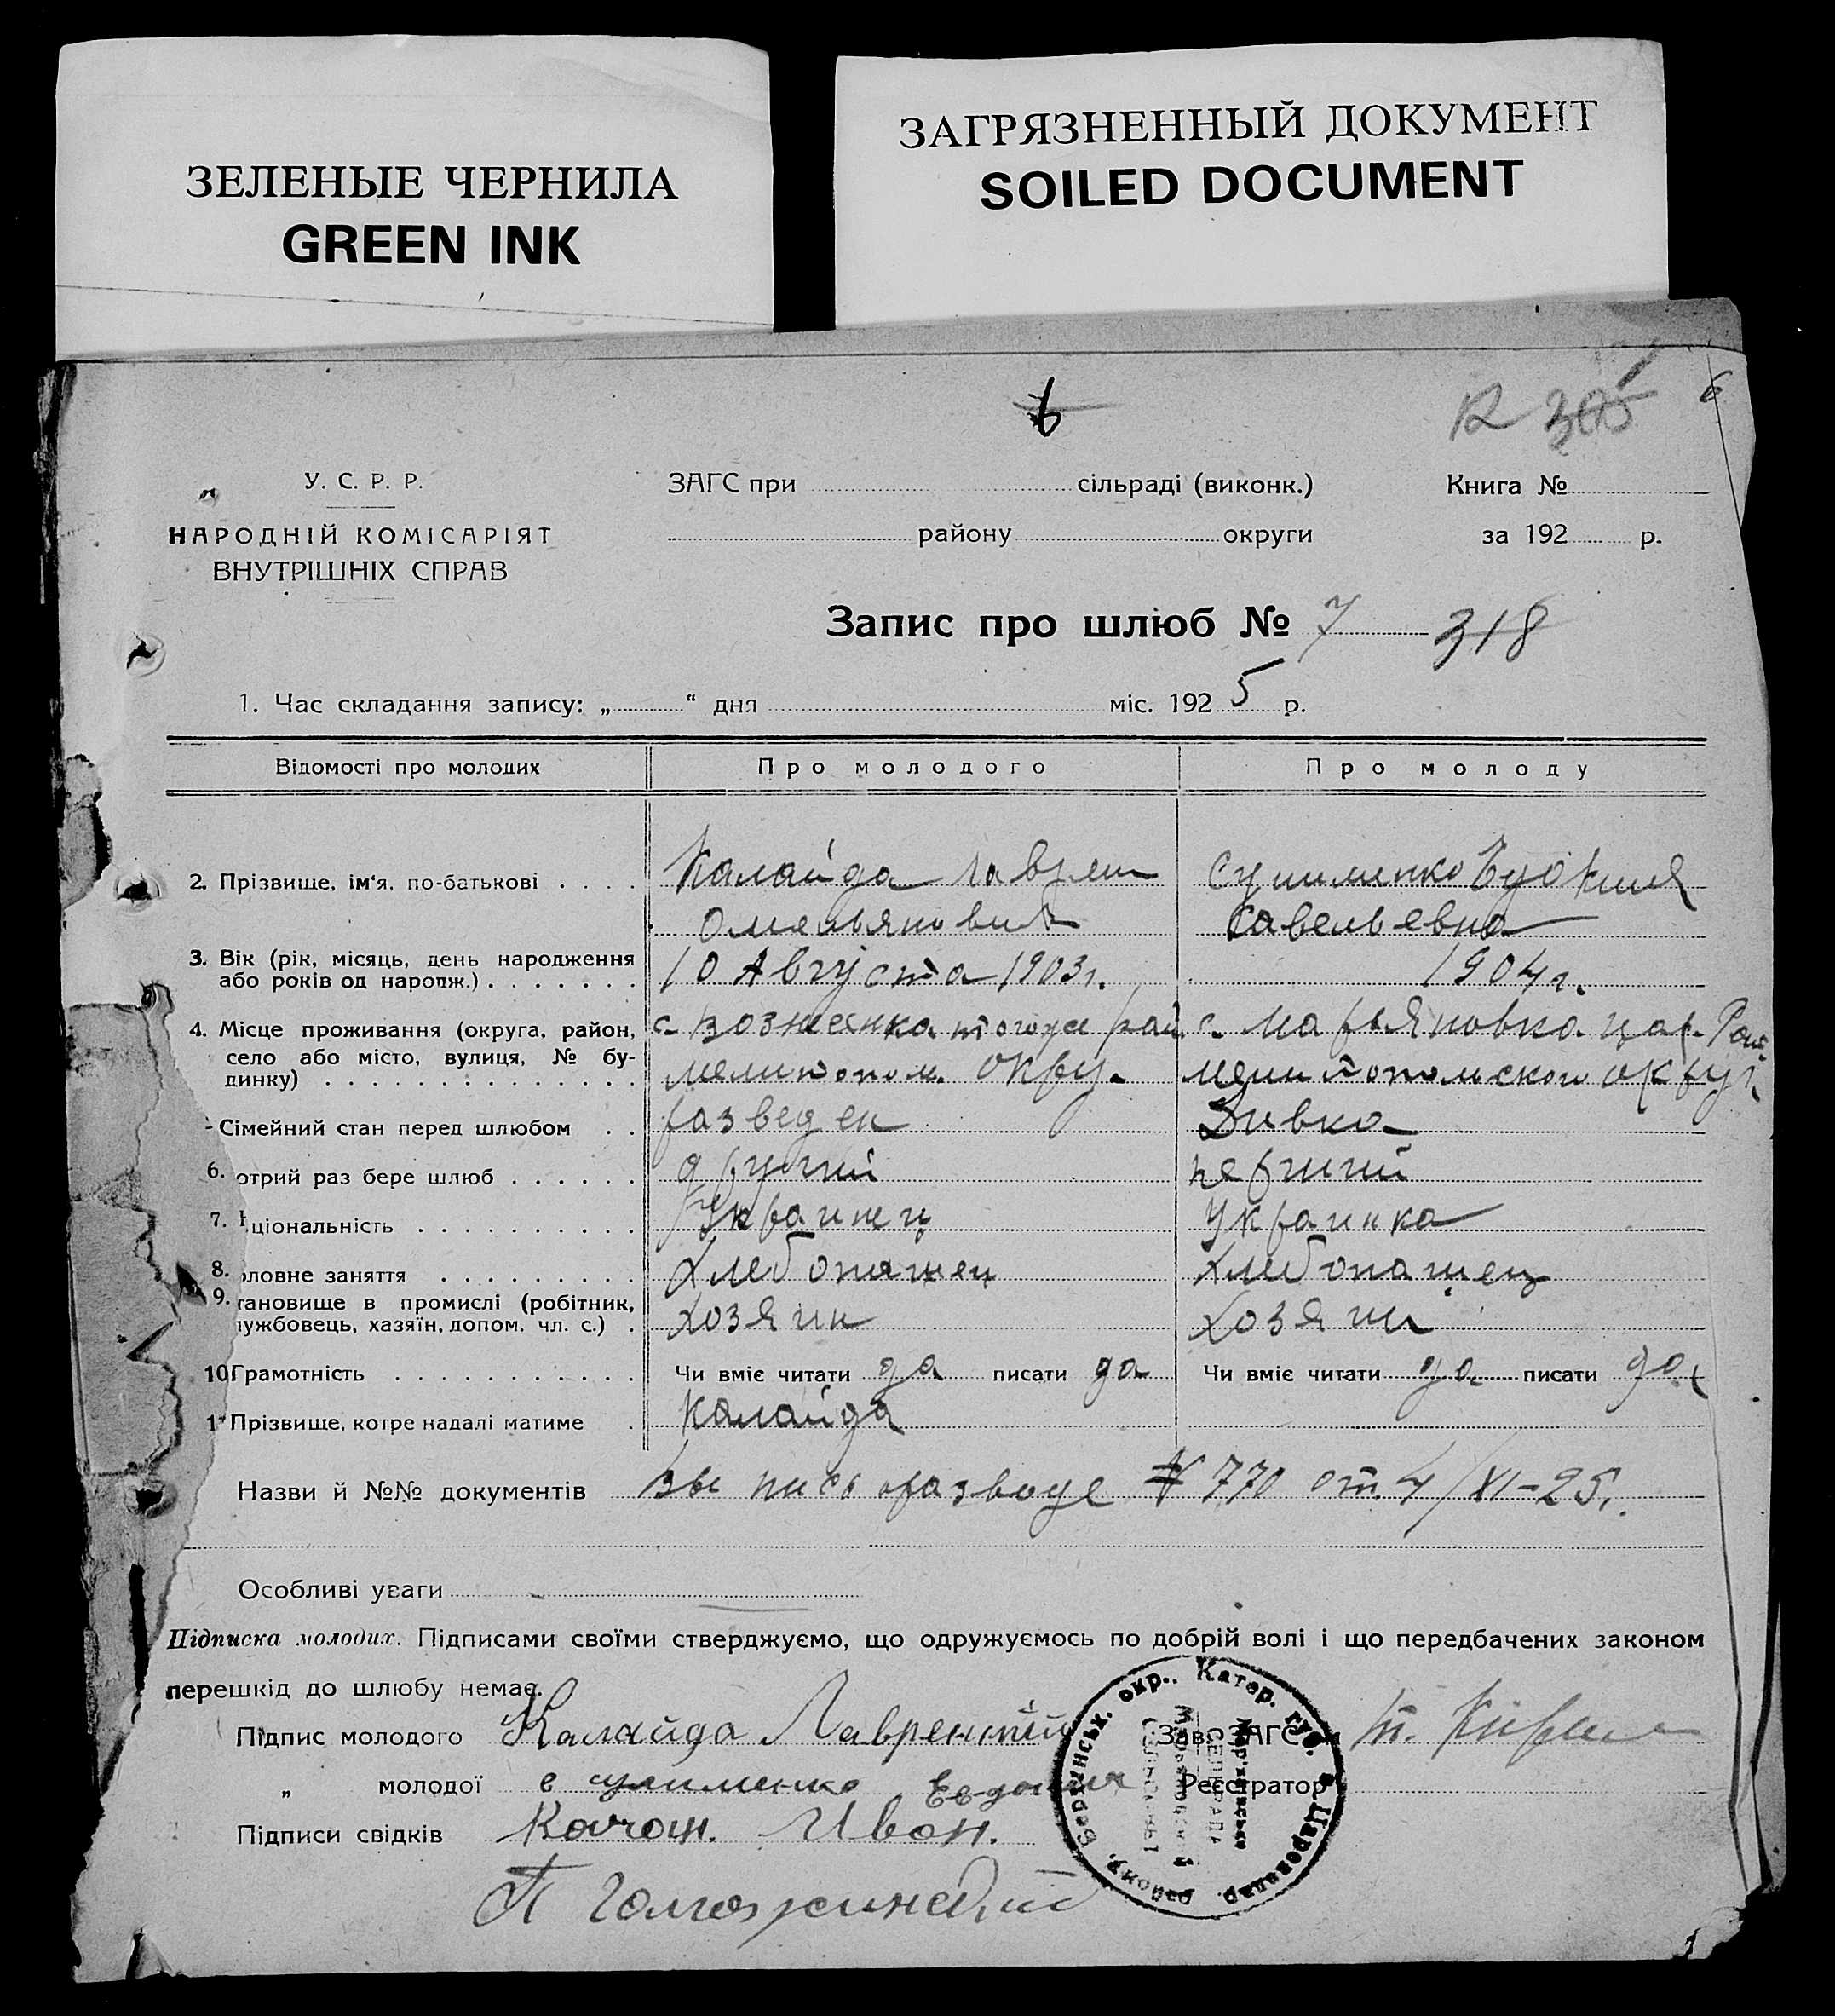 ЗЕЛЕНЫЕ ЧЕРНИЛА
GREEN INK
ЗАГРЯЗНЕННЫЙ ДОКУМЕНТ
SOILED DOCUMENT
6
R 305
6
У. С. Р. Р.
НАРОДНІЙ КОМІСАРІЯТ
ВНУТРІШНІХ СПРАВ
ЗАГС при сільраді (виконк.)
району округи
Книга №
за 192 р.
Запис про шлюб № 7 318
1. Час складання запису: „ “ дня міс. 1925 р.
Відомості про молодих Про молодого Про молоду
2. Прізвище, ім'я, по-батькові Калайда Лаврен Сулименко Евдокия
Омельянович Савельевна
3. Вік (рік, місяць, день народження
або років од народж.) 10 Августа 1903 г. 1904 г.
4. Місце проживання (округа, район, с. Вознесенка тогоже рай. с. Марьяновка цар. Рай.
село або місто, вулиця, № бу- мелитопол. окру. мелитопольского округ.
динку)
Сімейний стан перед шлюбом разведен Дивка
6. отрий раз бере шлюб другий первий
7. ціональність Украинец Украинка
8. оловне заняття Хлебопашец Хлебопашец
9. тановище в промислі (робітник,
лужбовець, хазяїн, допом. чл. с.) хозяин хозяин
10 Грамотність Чи вміє читати да писати да Чи вміє читати да писати да
1 Прізвище, котре надалі матиме Калайда
Назви й №№ документів Выпись о разводе № 770 от 4/XI-25.
Особливі уваги
Підписка молодих. Підписами своїми стверджуємо, що одружуємось по добрій волі і що передбачених законом
перешкід до шлюбу немає.
Підпис молодого Калайда Лаврентий Зав. ЗАГС'ом
„ молодої Сулименко Евдокия Реєстратор
Підписи свідків Качан. Иван.
Бердянськ. окр., Катер. губ. Цареводар. району,
Мар'янівська
СЕЛЬРАДА